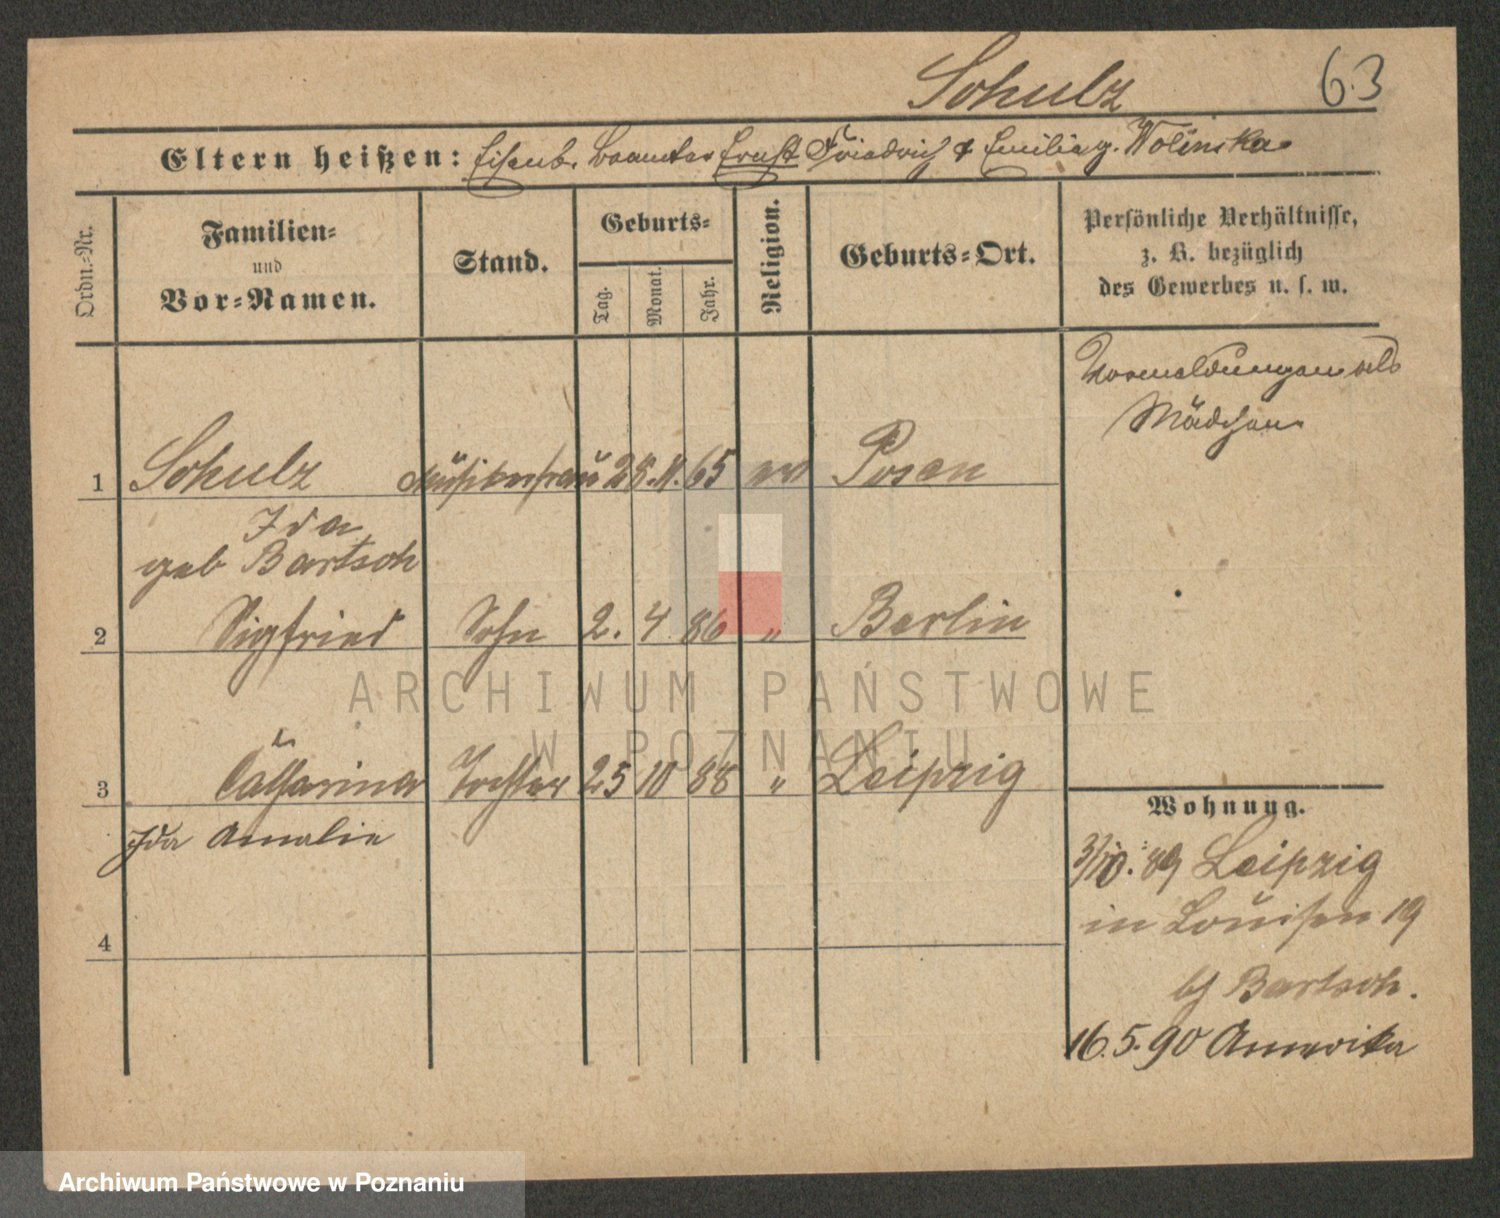 Schulz 63
Eltern heißen: Eisenb. Beamter Ernst Friedrich & Emilie g. Wolinska
Ordn.-Nr.
Familien-
und
Vor-Namen.
Stand.
Geburts-
Tag.
Monat.
Jahr.
Religion.
Geburts-Ort.
Persönliche Verhältnisse,
z. B. bezüglich
des Gewerbes u. s. w.
Vormeldungen als
Mädchen
1 Schulz Musikerfrau 28. 11. 65 ev Posen
Ida
geb Bartsch
2 Sigfried Sohn 2. 4 86 " Berlin
3 Catharina Tochter 25 10 88 " Leipzig
Ida Amalie
4
Wohnung.
3/10. 89 Leipzig
in Louisen 19
b/ Bartsch.
16.5.90 Amerika
ARCHIWUM PAŃSTWOWE
W POZNANIU
Archiwum Państwowe w Poznaniu